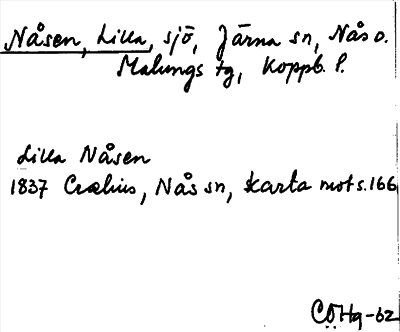 Nåsen, Lilla, sjö, Järna sn, Nås o.
Malungs tg, Koppb. l.
Lilla Nåsen
1837 Crælius, Nås sn, karta mot s. 166
CÖHg-62